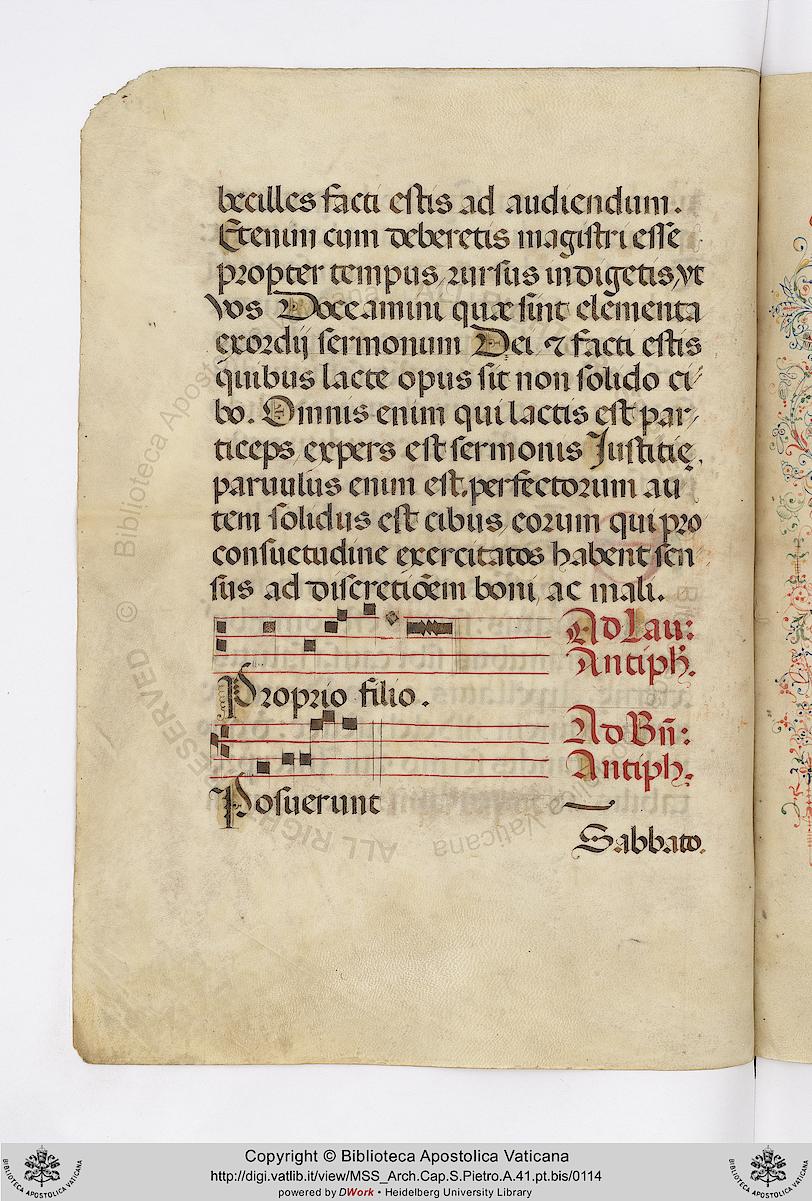 becilles facti estis ad audiendum.
Etenim cum deberetis magistri esse
propter tempus, rursus indigetis, vt
vos Doceamini quæ sint elementa
exordij sermonum Dei ⁊ facti estis
quibus lacte opus sit non solido ci-
bo. Omnis enim qui lactis est par-
ticeps, expers est sermonis Iustitię,
paruulus enim est, perfectorum au
tem solidus est cibus, eorum qui pro
consuetudine exercitatos habent sen
sus ad discretiōem boni, ac mali.
Ad Lau:
Antiph.
Proprio filio.
Ad Bn̄:
Antiph.
Posuerunt
Sabbato.
© Biblioteca Apostolica Vaticana
ALL RIGHTS RESERVED
Copyright © Biblioteca Apostolica Vaticana
http://digi.vatlib.it/view/MSS_Arch.Cap.S.Pietro.A.41.pt.bis/0114
powered by DWork • Heidelberg University Library
BIBLIOTECA APOSTOLICA VATICANA
BIBLIOTECA APOSTOLICA VATICANA